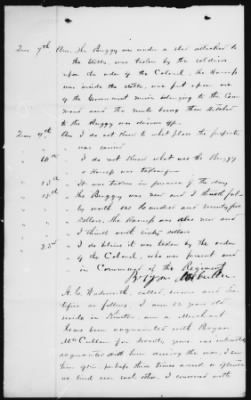 Ques 7th Ans. The Buggy was under a shed attached to
the Stable, was taken by the soldiers
upon the order of the Colonel, the Harness
was inside the stable, was put upon one
of the Government mules belonging to the Com
mand and the mule being then attached
to the Buggy was driven off
Ques 9th Ans I do not know to what place the property
was carried
" 10th " I do not know what use the Buggy
& Harness was
" 13th " It was taken in presence of the
" 18th " the Buggy was new and I think ful
ly worth one hundred and seventy five
dollars, the Harness was also new and
I think worth sixty dollars
" 22d " I do believe it was taken by the order
of the Colonel, who was present and
in Command of the Regiment
Bryan
A. C. Wadsworth, called, sworn and tes
tifies as follows, I am 52 year old
reside in and am a Merchant
have been acquainted with Bryan
McCullen for twenty years, was intimately
acquainted with him during the war, I saw
him often, perhaps three times a week or oftener
we lived near each other. I conversed with